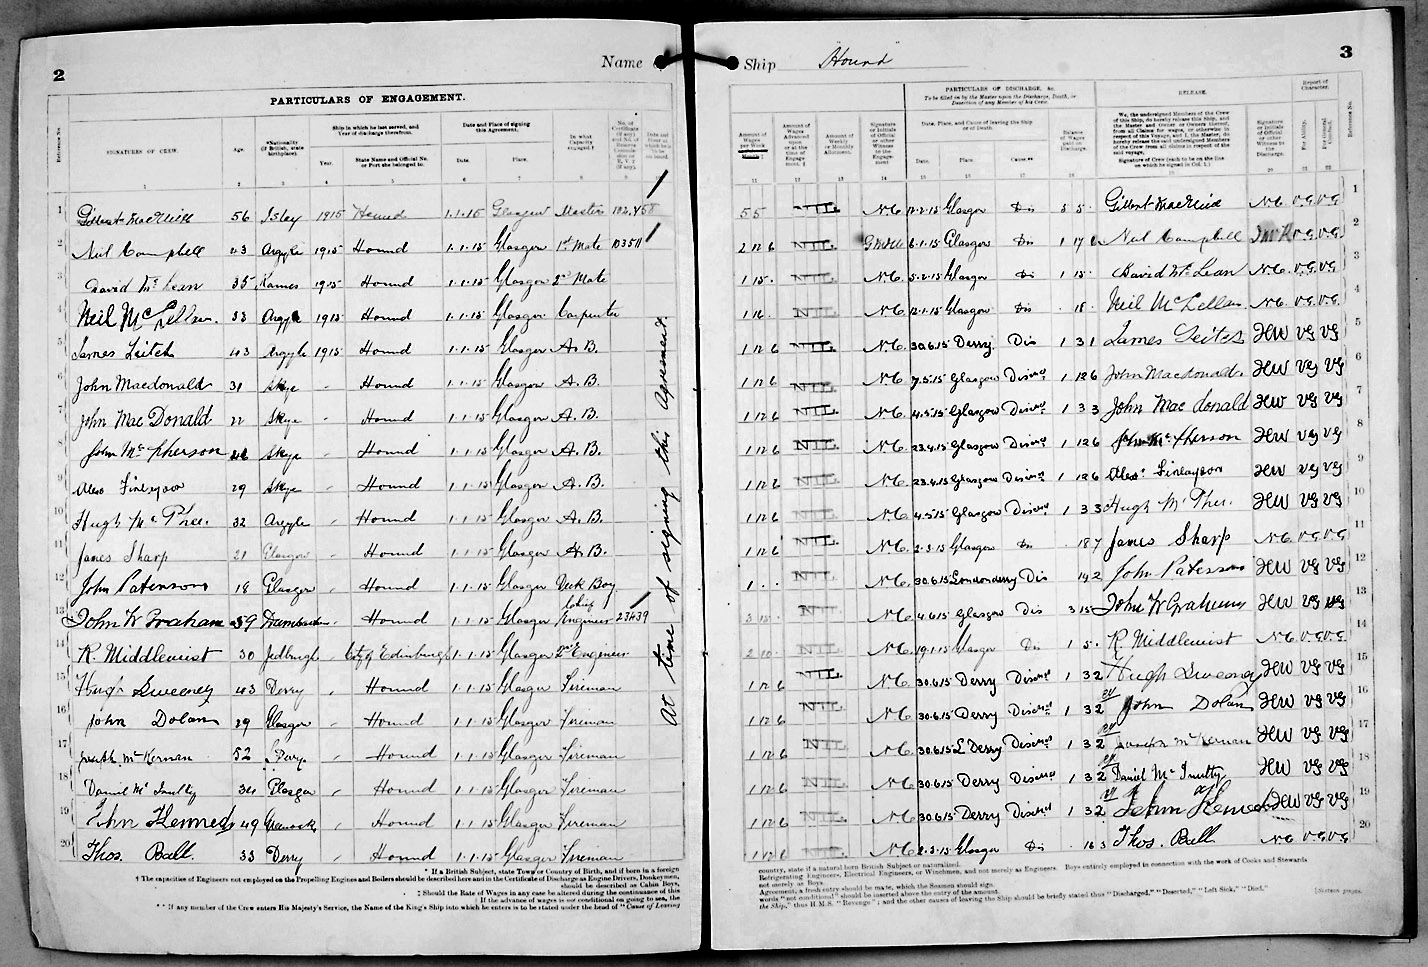 2
Name of Ship "Hound"
3
PARTICULARS OF ENGAGEMENT.
PARTICULARS OF DISCHARGE, &c.
To be filled in by the Master upon the Discharge, Death, or Desertion of any Member of his Crew.
RELEASE.
Report of Character.
Reference No.
SIGNATURES OF CREW.
Age.
*Nationality (If British, state birthplace).
Ship in which he last served, and Year of discharge therefrom.
Year.
State Name and Official No. or Port she belonged to.
Date and Place of signing this Agreement.
Date.
Place.
In what Capacity engaged.†
Amount of Wages per Week
Amount of Wages Advanced upon or at the time of Engagement.‡
Amount of Weekly or Monthly Allotment.
Signature or Initials of Official or other Witness to the Engagement
Date, Place, and Cause of leaving the Ship or of Death.
Date.
Place.
Cause.**
Balance of Wages paid on Discharge.
We, the undersigned Members of the Crew of this Ship, do hereby release this Ship, and the Master and Owner or Owners thereof, from all Claims for wages, or otherwise in respect of this Voyage, and I, the Master, do hereby release the said undersigned Members of the Crew from all claims in respect of the said voyage.
Signature of Crew (each to be on the line on which he signed in Col. 1.)
Signature or Initials of Official or other Witness to the Discharge.
For Ability.
For General Conduct.
Reference No.
1 Gilbert MacNeill 56 Islay 1915 Hound 1.1.15 Glasgow Master 55 NIL N.C. 12.2.15 Glasgow Dis 5 5 Gilbert MacNeill N.C. V.G. V.G. 1
2 Neil Campbell 43 Argyle 1915 Hound 1.1.15 Glasgow 1st Mate 2 12 6 NIL 6.1.15 Glasgow Dis 1 17 6 Neil Campbell V.G. V.G. 2
3 David McLean 35 Kames 1915 Hound 1.1.15 Glasgow 2nd Mate 1 15 NIL N.C. 5.2.15 Glasgow Dis 1 15 David McLean N.C. V.G. V.G. 3
4 Neil McLellan 33 Argyle 1915 Hound 1.1.15 Glasgow Carpenter 1 16 NIL N.C. 12.1.15 Glasgow Dis 18 Neil McLellan N.C. V.G. V.G. 4
5 James Leitch 43 Argyle 1915 Hound 1.1.15 Glasgow A.B. 1 12 6 NIL N.C. 30.6.15 Derry Dis 1 3 1 James Leitch HW VG VG 5
6 John Macdonald 31 Skye - Hound 1.1.15 Glasgow A.B. 1 12 6 NIL N.C. 7.5.15 Glasgow 1 12 6 John Macdonald HW VG VG 6
7 John MacDonald 22 Skye Hound 1.1.15 Glasgow A.B. 1 12 6 NIL N.C. 4.5.15 Glasgow 1 3 3 John Macdonald HW VG VG 7
8 John McPherson Skye Hound 1.1.15 Glasgow A.B. 1 12 6 NIL N.C. 23.4.15 Glasgow 1 12 6 John McPherson HW VG VG 8
9 Alex Finlayson 29 Skye Hound 1.1.15 Glasgow A.B. 1 12 6 NIL N.C. 23.4.15 Glasgow 1 12 6 Alex Finlayson HW VG VG 9
10 Hugh McPhee 32 Argyle Hound 1.1.15 Glasgow A.B. 1 12 6 NIL N.C. 4.5.15 Glasgow 1 3 3 Hugh McPhee HW VG VG 10
11 James Sharp 21 Glasgow Hound 1.1.15 Glasgow A.B. 1 12 6 NIL N.C. 2.3.15 Glasgow Dis 18 7 James Sharp N.C. V.G. V.G. 11
12 John Paterson 18 Glasgow Hound 1.1.15 Glasgow Deck Boy 1 . . NIL N.C. 30.6.15 Londonderry Dis 14 2 John Paterson HW VG VG 12
13 John W Graham 59 Hound 1.1.15 Glasgow Chief Engineer 23439 3 15 NIL N.C. 4.6.15 Glasgow Dis 3 15 John W Graham HW VG VG 13
14 R. Middlemist 30 Jedburgh City of Edinburgh 1.1.15 Glasgow 2nd Engineer 2 10 NIL N.C. 19.1.15 Glasgow Dis 1 5 R. Middlemist N.C. V.G. V.G. 14
15 Hugh Sweeney 43 Derry Hound 1.1.15 Glasgow Fireman 1 12 6 NIL N.C. 30.6.15 Derry 1 3 2 Hugh Sweeney HW VG VG 15
16 John Dolan 29 Glasgow Hound 1.1.15 Glasgow Fireman 1 12 6 NIL N.C. 30.6.15 Derry 1 3 2 John Dolan HW VG VG 16
17 Joseph McKernan 52 L Derry Hound 1.1.15 Glasgow Fireman 1 12 6 NIL N.C. 30.6.15 L Derry 1 3 2 Joseph McKernan HW VG VG 17
18 Daniel McInulty 34 Glasgow Hound 1.1.15 Glasgow Fireman 1 12 6 NIL N.C. 30.6.15 Derry 1 3 2 Daniel McInulty HW VG VG 18
19 John Kennedy 49 Greenock Hound 1.1.15 Glasgow Fireman 1 12 6 NIL N.C. 30.6.15 Derry 1 3 2 John Kennedy HW VG VG 19
20 Thos. Ball 33 Derry Hound 1.1.15 Glasgow Fireman 1 12 6 NIL N.C. 2.3.15 Glasgow Dis 16 3 Thos. Ball N.C. V.G. V.G. 20
At time of signing this Agreement.
* If a British Subject, state Town or Country of Birth, and if born in a foreign
† The capacities of Engineers not employed on the Propelling Engines and Boilers should be described here and in the Certificate of Discharge as Engine Drivers, Donkeymen,
should be described as Cabin Boys,
‡ Should the Rate of Wages in any case be altered during the continuance of this
If the advance of wages is not conditional on going to sea, the
** If any member of the Crew enters His Majesty's Service, the Name of the King's Ship into which he enters is to be stated under the head of "Cause of Leaving
country, state if a natural born British Subject or naturalized.
Refrigerating Engineers, Electrical Engineers, or Winchmen, and not merely as Engineers. Boys entirely employed in connection with the work of Cooks and Stewards
not merely as Boys.
Agreement, a fresh entry should be made, which the Seaman should sign.
words "not conditional" should be inserted above the entry of the amount.
the Ship," thus H.M.S. "Revenge"; and the other causes of leaving the Ship should be briefly stated thus "Discharged," "Deserted," "Left Sick," "Died."